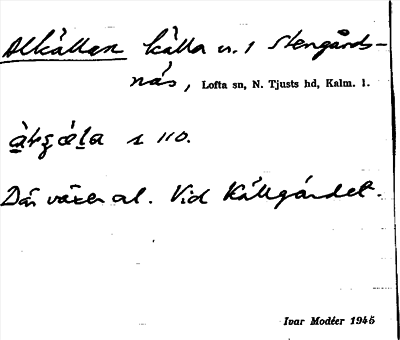 Alkällan källa n. 1 Stengårds-
näs, Lofta sn, N. Tjusts hd, Kalm. l.
s 110.
Där växer al. Vid Källgärdet.
Ivar Modéer 1945